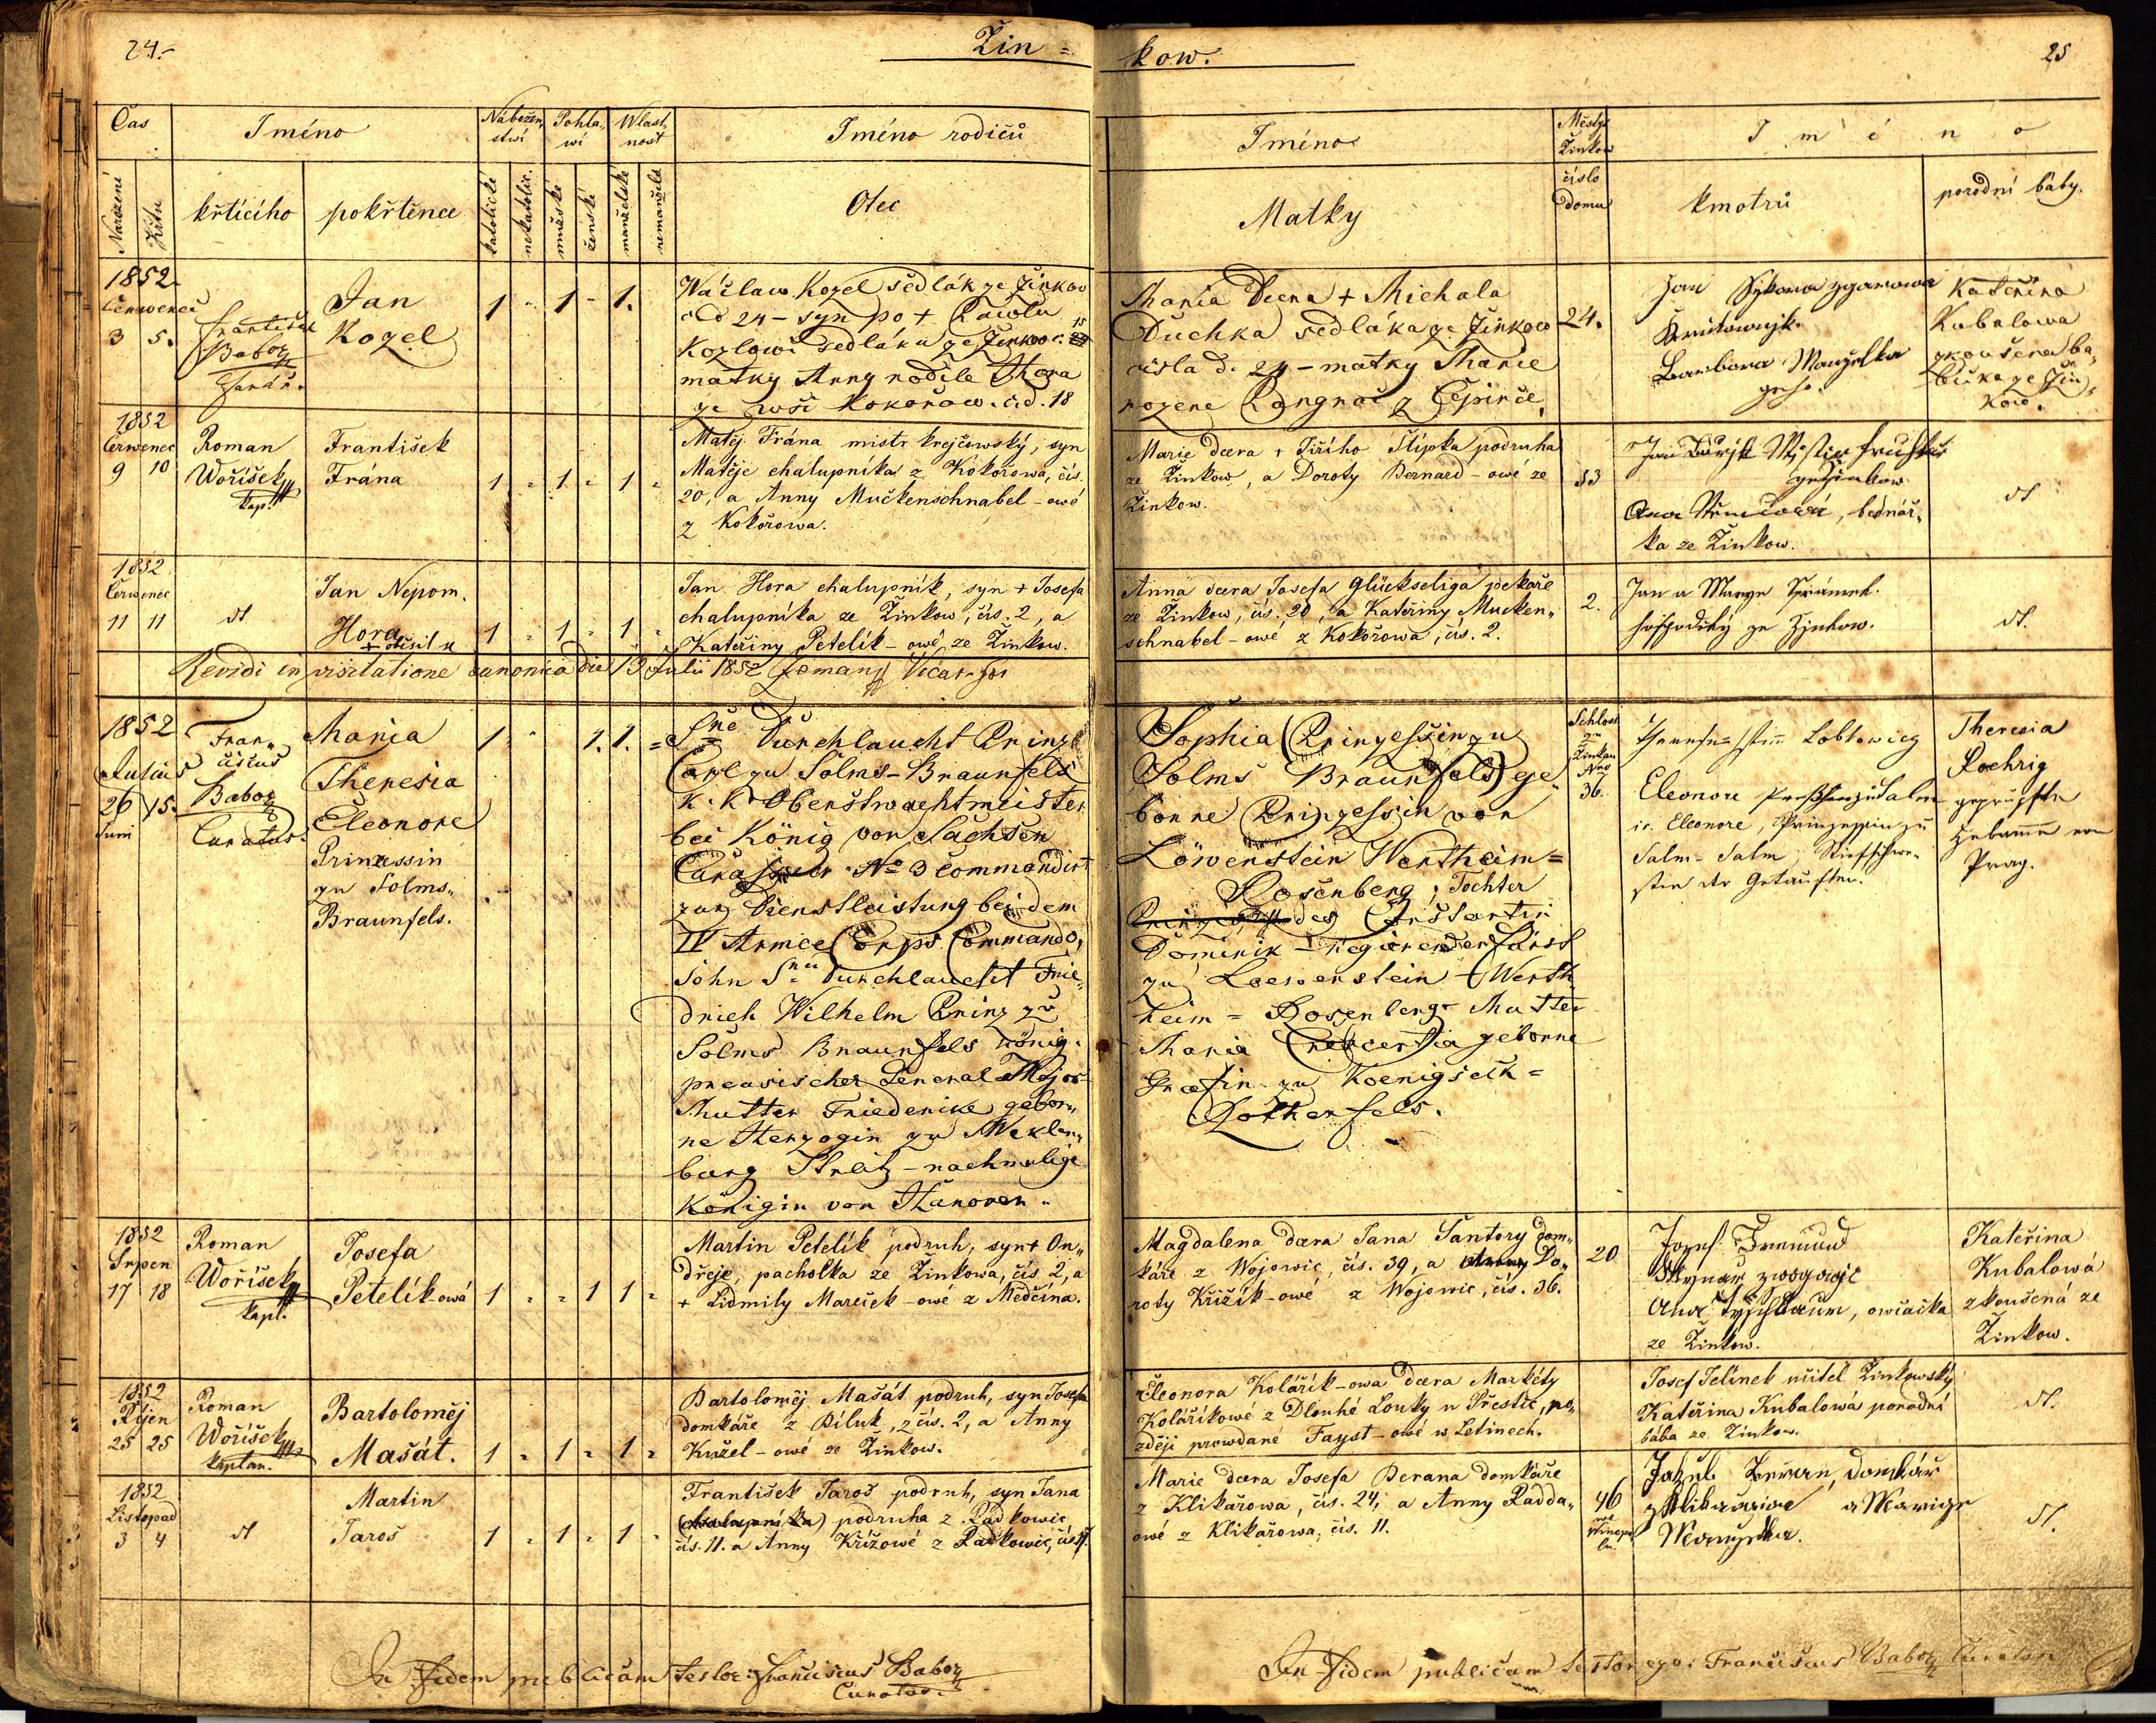 24.-
Žin =
kow.
25
Čas
Jméno
Nábožen,
stwí
Pohla,
wí
Wlast,
nost
Jméno rodičů
Narození
Křtu
křtícího
pokřtěnce
katolické
nekatolic.
mužské
ženské
manželské
nemanžels.
Otec
Jméno
Matky
Městys
Žinkow
číslo
domu
Jméno
kmotrů
porodní báby.
1852
Červenec
3 5.
František
Baboz
Farář.
Jan
Kozel
1 - 1 - 1.
Wáclaw Kozel sedlák ze Žinkow
č d 24 - syn po + Pawlu
Kozlowi sedláku ze Žinkow č. 15
matky Anny rodilé Hora
ze wsi Kokořow č. d. 18
Maria Dcera + Michala
Duchka sedláka ze Žinkow
čísla d. 24 - matky Marie
rozene
24.
Jan Sýkora
Barbora Manželka
geho.
Kateřina
Kubalowa
zkoušena ba,
bička ze Žin,
kow.
1852
Červenec
9 10
Roman
Woříšek
kap.
František
Frána
1 - 1 - 1 -
Matěj Frána mistr krejčowský, syn
Matěje chalupníka z Kokořowa, čís.
20, a Anny Muckenschnabel - owé
z Kokořowa.
Marie dcera + Jiřího Šlipka podruha
ze Žinkow, a Doroty Bernard - owé ze
Žinkow.
53
ze Žinkow
bednář,
ka ze Žinkow.
dt
1852
Červenec
11 11
dt
Jan Nepom.
Hora
1 - 1 - 1 -
Jan Hora chalupník, syn + Josefa
chalupníka ze Žinkow, čís. 2, a
Kateřiny Petelík - owé ze Žinkow.
Anna dcera Josefa Glückseliga pekaře
ze Žinkow, čís. 20, a Kateřiny Mucken,,
schnabel - owé z Kokořowa, čís. 2.
2.
Jan a Marye
ze Žinkow.
dt.
Revidi in visitatione canonica die 13 Julii 1852 Zeman Vicar
1852
Julius
26 15.
Juni
Fran,,
ciscus
Baboz
Curatus.
Maria
Theresia
Eleonore
Prinzessin
zu Solms,,
Braunfels.
1 - 1. 1. =
Sne Durchlaucht Prinz
Carl zu Solms - Braunfels
K. K. Oberstwachtmeister
bei König von Sachsen
Curassier No 3 commandirt
zur Dienstleistung bei dem
IV Armee Corps Commando,
Sohn Snr Durchlaucht Frie,,
drich Wilhelm Prinz zu
Solms Braunfels König.
preusischer General Major
Mutter Friederike gebor,,
ne Herzogin zu Meklen,,
burg Strelitz - nachmalige
Königin von Hanover.
Sophia Prinzessin zu
Solms Braunfels ge,,
borne Prinzessin von
Löwenstein Wertheim =
Rosenberg, Tochter
des Constantin
Dominik - regierender Fürst
zu Loewenstein - Werth
heim = Rosenberg - Mutter
Maria Crescentia geborne
Graefin zu Koenigseck =
Rothenfels.
Schloss
zu
Žinkau
Nro
36.
Lobkowicz
Eleonore
ic. Eleonore, Prinzessin zu
Salm - Salm, Stiefschwe,,
ster der Getauften.
Theresia
Roehrig
geprüfte
Hebamme von
Prag.
1852
Srpen
17 18
Roman
Woříšek
kapl.
Josefa
Petelík-owá
1 - - 1 1 -
Martin Petelík podruh, syn + On,,
dřeje, pacholka ze Žinkowa, čís 2, a
+ Lidmily Mareček - owé z Mědčína.
Magdalena dcera Jana Šantory dom,,
káře z Wojowic, čís. 39, a Do,,
roty Křižík - owé z Wojowic, čís. 36.
20
Josef
owčačka
ze Žinkow.
Kateřina
Kubalowá
zkoušená ze
Žinkow.
1852
Říjen
25 25
Roman
Woříšek
kaplan.
Bartoloměj
Mašát.
1 - 1 - 1 -
Bartoloměj Mašát podruh, syn Josefa
domkáře z Biluk, z čís. 2, a Anny
Kužel - owé ze Žinkow.
Eleonora Kolářík - owa dcera Markéty
Koláříkowé z Dlouhé Louky u Přestic, po,,
zději prowdané Fayst - owé w Letinech.
Josef Jelínek učitel Žinkowský
Kateřina Kubalowá porodní
bába ze Žinkow.
dt.
1852
Listopad
3 4
dt
Martin
Jaroš
1 - 1 - 1 -
František Jaroš podruh, syn Jana
(chalupníka) podruha z Radkowic,
čís. 11. a Anny Křížowé z Radkowic, čís.
Marie dcera Josefa Berana domkáře
z Klikařowa, čís. 24, a Anny Radda,,
owé z Klikařowa, čís. 11.
46
Jakub Beran, domkář
z Klikařowa a Marige
Manželka.
dt.
In Fidem publicam testor Franciscus Baboz
Curatus.
In Fidem publicam testor ego: Franciscus Baboz Curatus